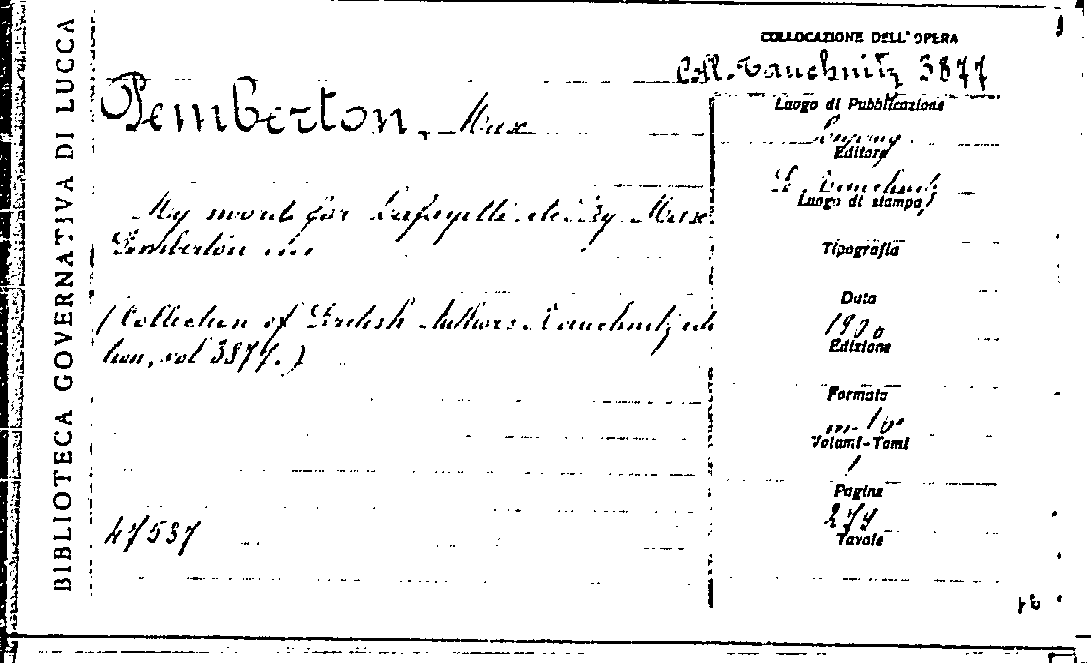 BIBLIOTECA GOVERNATIVA DI LUCCA
COLLOCAZIONE DELL'OPERA
Coll. Tauchnitz 3877
Pemberton, Max
Luogo di Pubblicazione
Editore
Luogo di stampa
My sword for Lafayette etc. By Max
Pemberton
Tipografia
Data
1920
(Collection of British Authors Tauchnitz edi
tion, vol 3877.)
Edizione
Formato
in-16°
Volumi-Tomi
1
Pagine
279
Tavole
47537